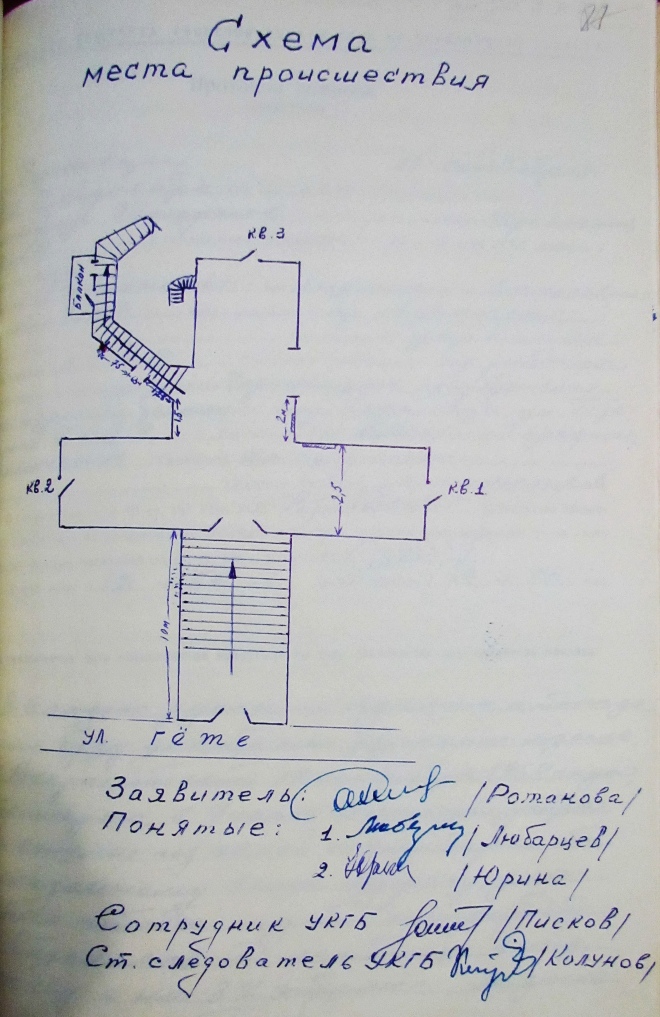 87
Схема
места происшествия
кв.3
балкон
1,5
2м
кв.2
2,5
кв.1
10м
ул. Гёте
Заявитель: /Ротанова/
Понятые: 1. /Любарцев/
2. /Юрина/
Сотрудник УКГБ /Писков/
Ст. следователь УКГБ /Колунов/